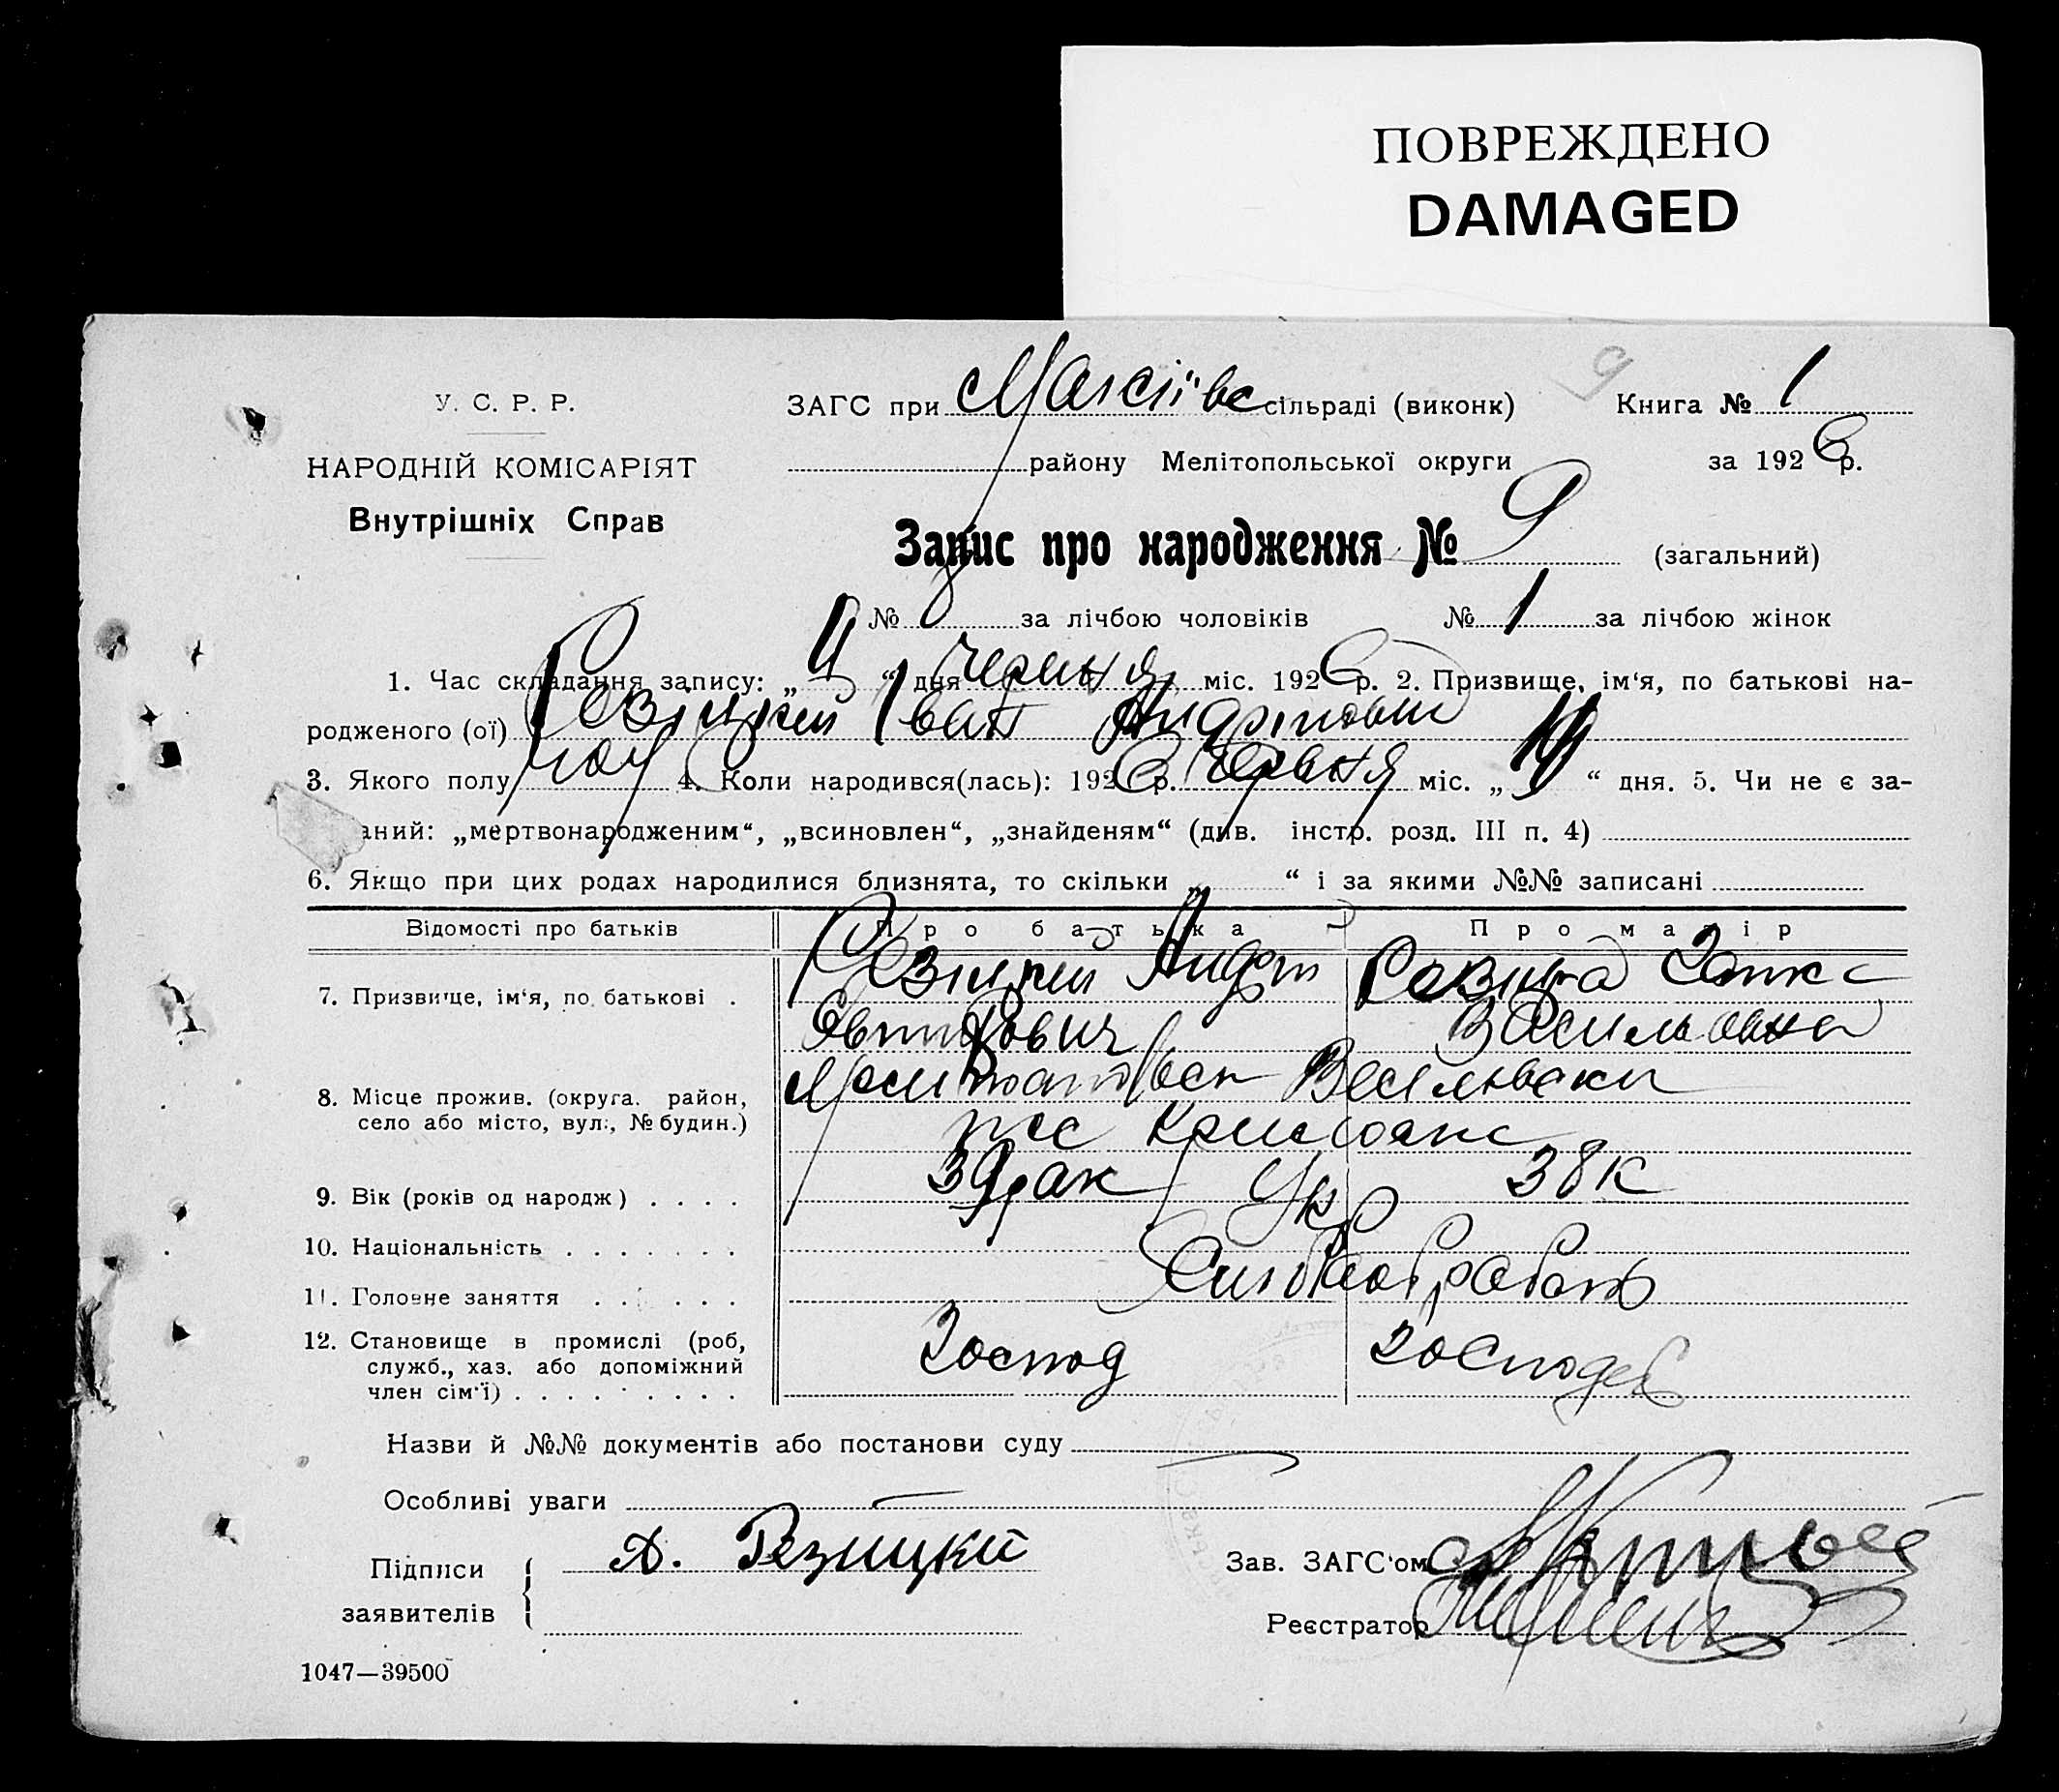 ПОВРЕЖДЕНО
DAMAGED
У. С. Р. Р.
НАРОДНІЙ КОМІСАРІЯТ
Внутрішніх Справ
ЗАГС при сільраді (виконк)
району Мелітопольської округи
9
Книга № 1
за 1926 р.
Запис про народження № 9 (загальний)
№ 8 за лічбою чоловіків № 1 за лічбою жінок
1. Час складання запису: „ “ дня червня міс. 1926 р. 2. Призвище, ім‘я, по батькові на-
родженого (ої) Резицкий Іван Андріович
3. Якого полу чол 4. Коли народився(лась): 1926 р. червня міс. „ “ дня. 5. Чи не є за-
аний: „мертвонародженим“, „всиновлен“, „знайденям“ (див. інстр. розд. III п. 4)
6. Якщо при цих родах народилися близнята, то скільки „ “ і за якими №№ записані
Відомості про батьків Про батька Про матір
7. Призвище, ім‘я, по батькові . Резицкий Андрей
Васильовна
8. Місце прожив. (округа. район,
село або місто, вул., № будин.)
9. Вік (років од народж) . . . . 39 38
10. Національність . . . . . . . Укр
11. Головне заняття . . . . . .
12. Становище в промислі (роб,
служб., хаз. або допоміжний
член сім‘ї) . . . . . . . . .
Господ господ
Назви й №№ документів або постанови суду
Особливі уваги
Підписи
заявителів
А. Резицкий
Зав. ЗАГС‘ом
Реєстратор
1047—39500